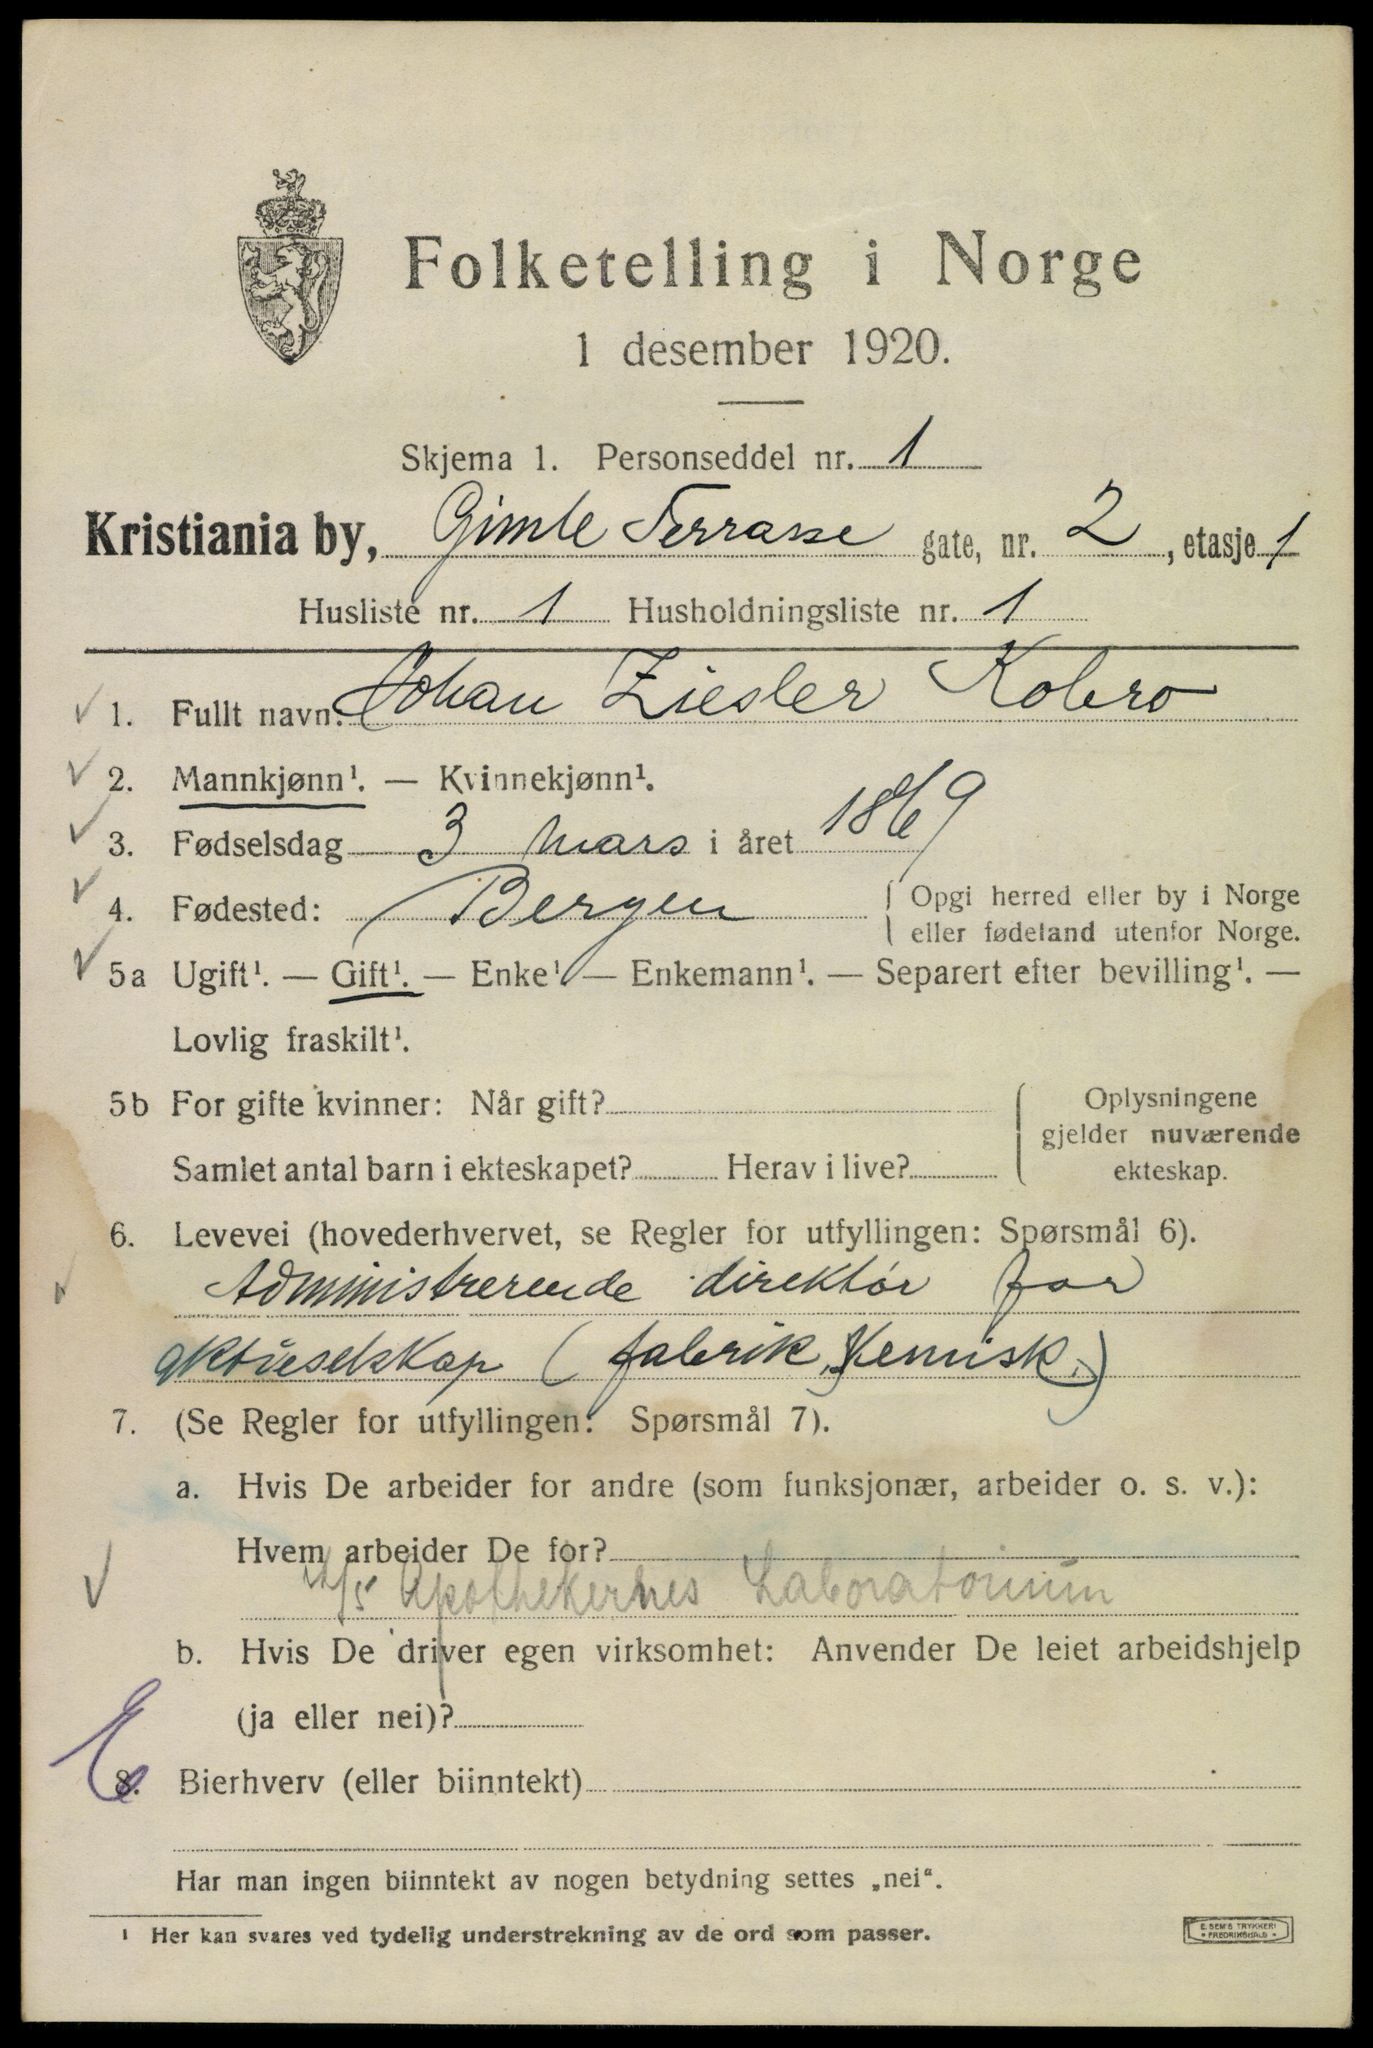 Folketelling i Norge
1 desember 1920.
Skjema 1. Personseddel nr. 1
Kristiania by, Gimle Terrasse gate, nr. 2, etasje 1
Husliste nr. 1 Husholdningsliste nr. 1
1. Fullt navn: Johan Ziesler Kobro
2. Mannkjønn¹. — Kvinnekjønn¹.
3. Fødselsdag 3 mars i året 1869
4. Fødested: Bergen
Opgi herred eller by i Norge
eller fødeland utenfor Norge.
5a Ugift¹. — Gift¹. — Enke¹ — Enkemann¹. — Separert efter bevilling¹. —
Lovlig fraskilt¹.
5b For gifte kvinner: Når gift?
Samlet antal barn i ekteskapet? Herav i live?
Oplysningene
gjelder nuværende
ekteskap.
6. Levevei (hovederhvervet, se Regler for utfyllingen: Spørsmål 6).
Administrerende direktør for
aktieselskap (fabrik, kemisk.)
7. (Se Regler for utfyllingen: Spørsmål 7).
a. Hvis De arbeider for andre (som funksjonær, arbeider o. s. v.):
Hvem arbeider De for?
A/S Apothekernes Laboratorium
b. Hvis De driver egen virksomhet: Anvender De leiet arbeidshjelp
(ja eller nei)?
E
8. Bierhverv (eller biinntekt)
Har man ingen biinntekt av nogen betydning settes „nei“.
¹ Her kan svares ved tydelig understrekning av de ord som passer.
E. SEM'S TRYKKERI
FREDRIKSHALD